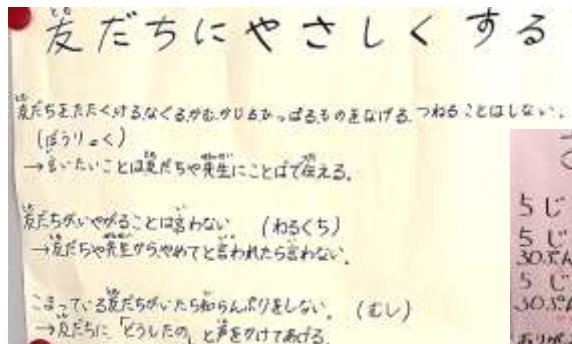 友だちにやさしくする
友だちをたたくけるなぐるかむかじるひっぱるものをなげる、つねることはしない。
(ぼうりょく)
→言いたいことは友だちや先生にことばで伝える。
友だちがいやがることは言わない (わるくち)
→友だちや先生から、やめてと言われたら言わない。
こまっている友だちがいたら知らんぷりをしない。(むし)
→友だちに「どうしたの」と声をかけてあげる。
5じ
5じ
30ぷん
5じ
30ぷん